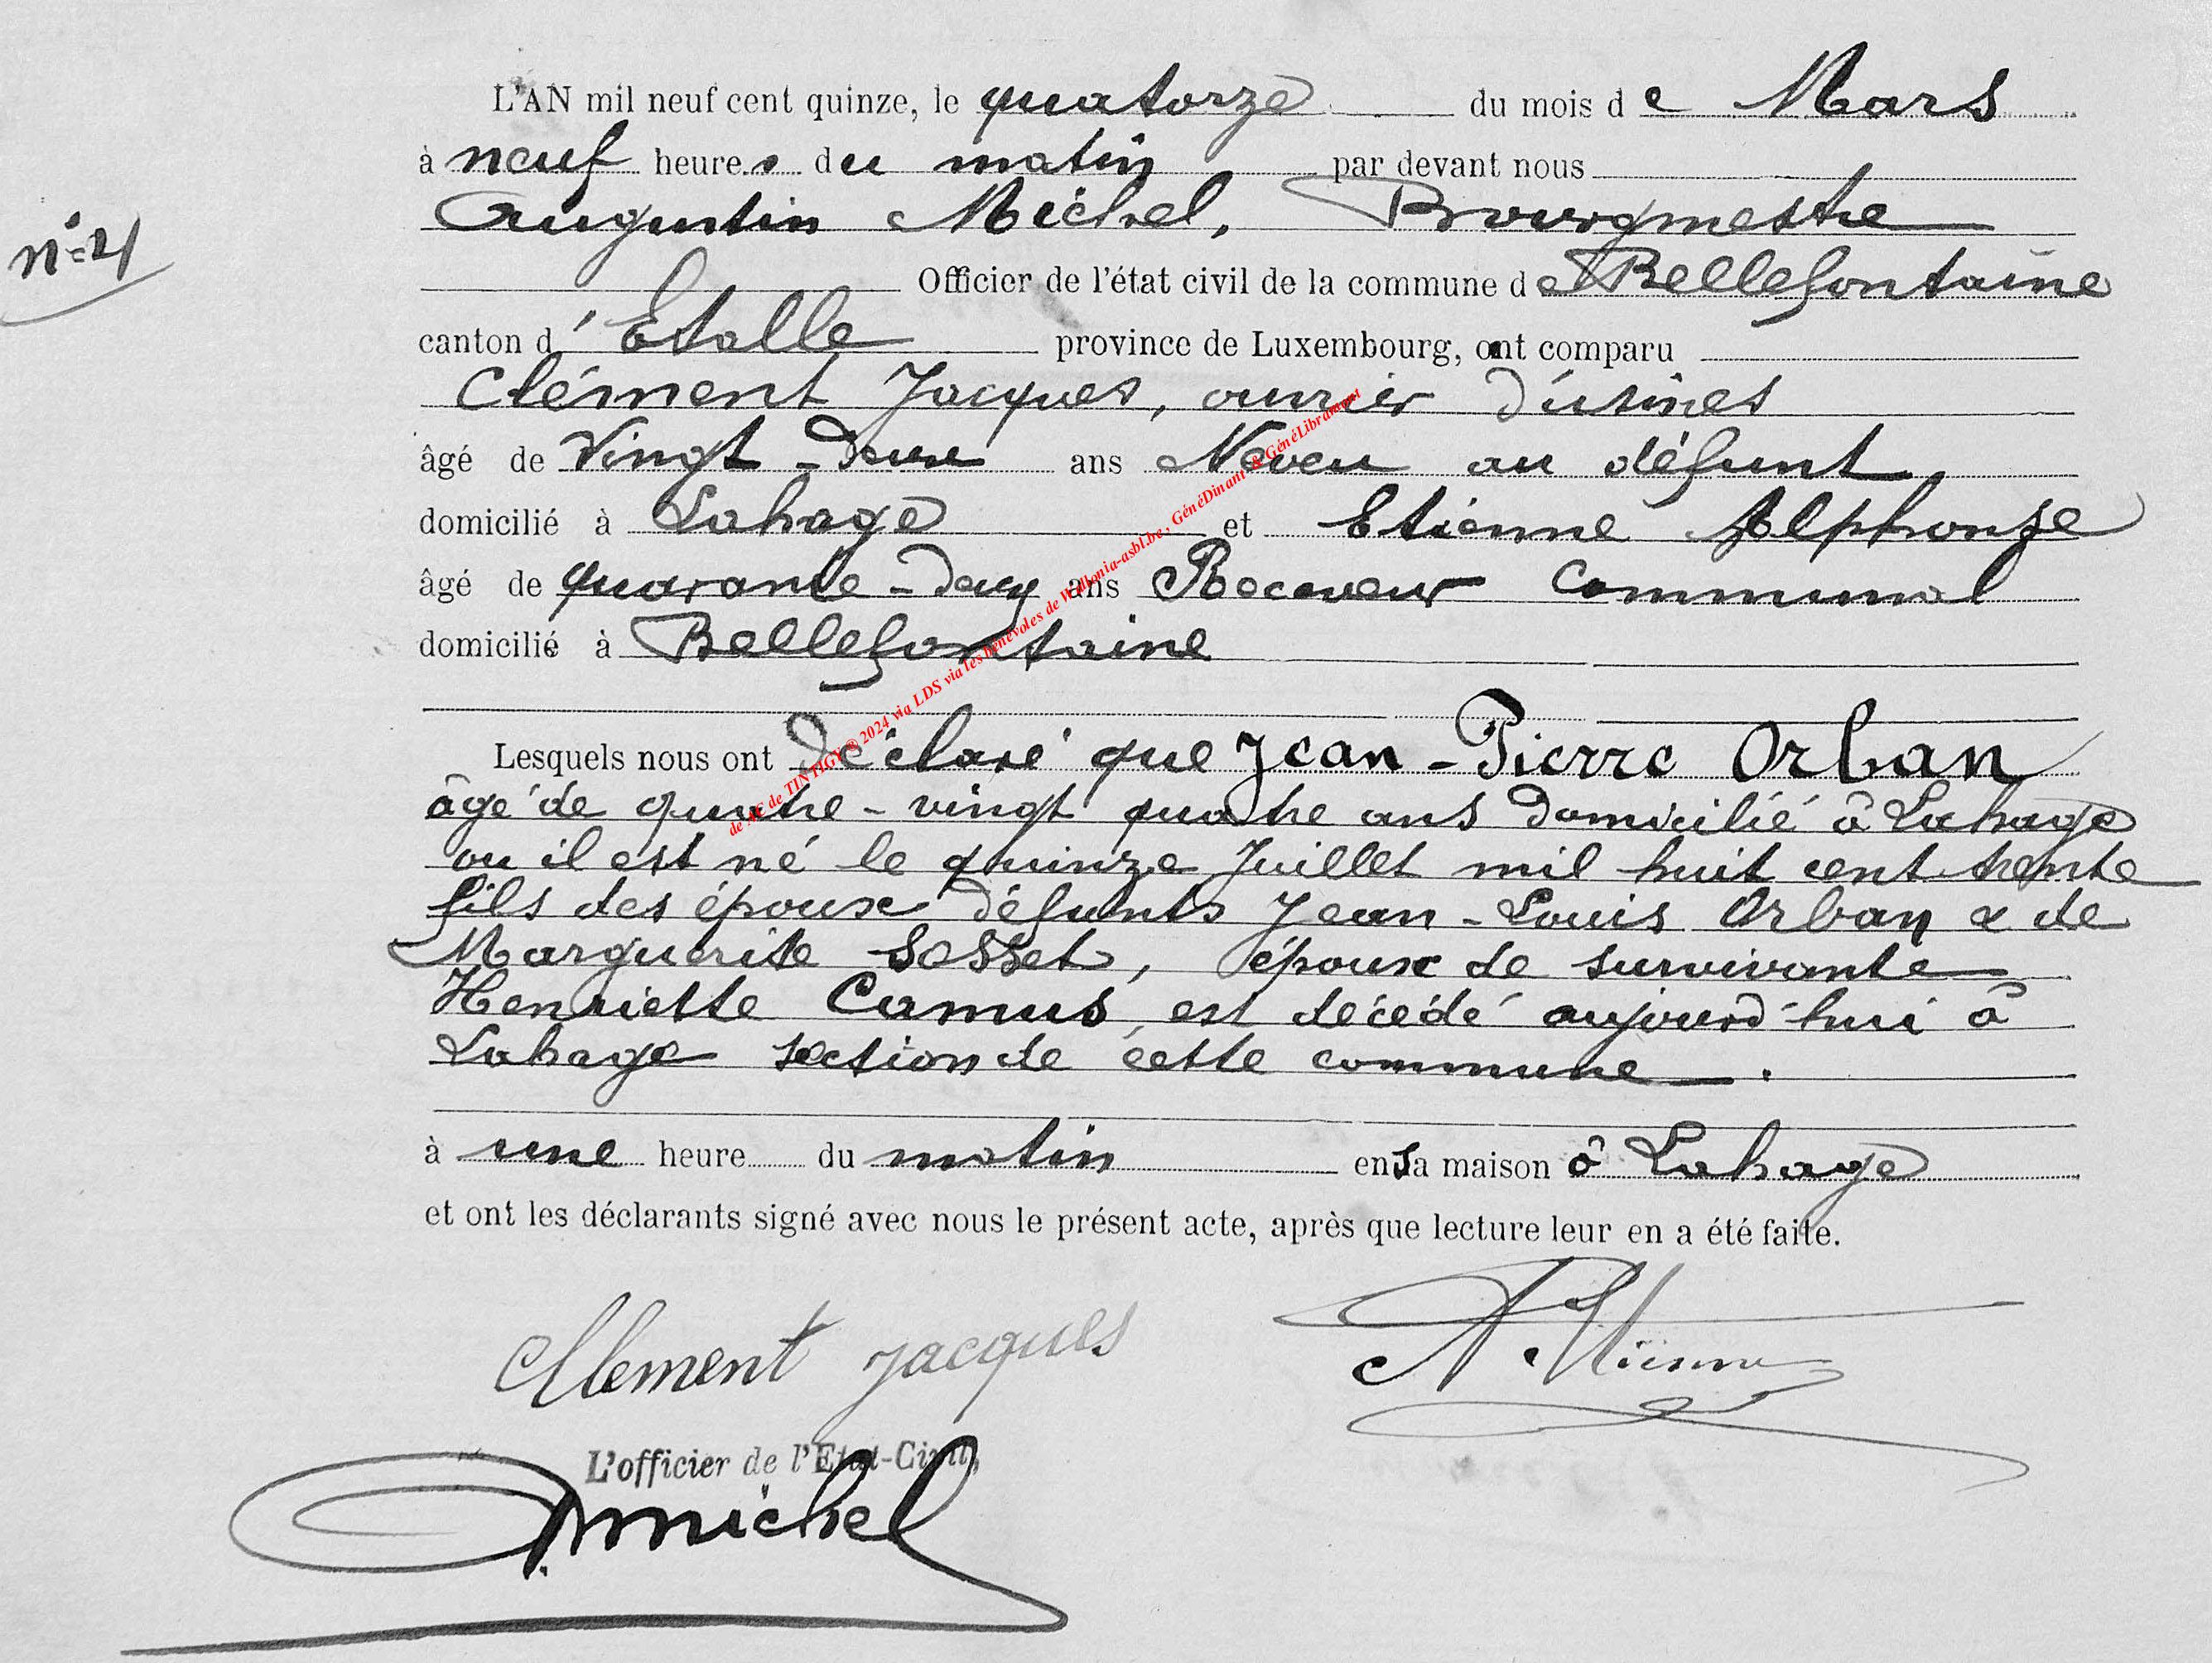 L'AN mil neuf cent quinze, le quatorze du mois de Mars
à neuf heures du matin par devant nous
Augustin Michel, Bourgmestre
n° 4
Officier de l'état civil de la commune de Bellefontaine
canton d'Etalle province de Luxembourg, ont comparu
Clément Jacques, ouvrier d'usines
âgé de Vingt-deux ans Neveu au défunt
domicilié à Lahage et Etienne Alphonse
âgé de quarante-deux ans Receveur Communal
domicilié à Bellefontaine
Lesquels nous ont déclaré que Jean-Pierre Orban
âgé de quatre-vingt quatre ans domicilié à Lahage
ou il est né le quinze Juillet mil huit cent trente
fils des époux défunts Jean-Louis Orban & de
Marguerite Sosset, époux de survivante
Henriette Camus, est décédé aujourd'hui à
Lahage section de cette commune.
à une heure du matin en sa maison à Lahage
et ont les déclarants signé avec nous le présent acte, après que lecture leur en a été faite.
Clement Jacques A Etienne
L'officier de l'Etat-Civil,
AMichel
de AC de TINTIGY © 2024 via LDS via les bénévoles de Wallonia-asbl.be, GénéDinant & GénéLibramont